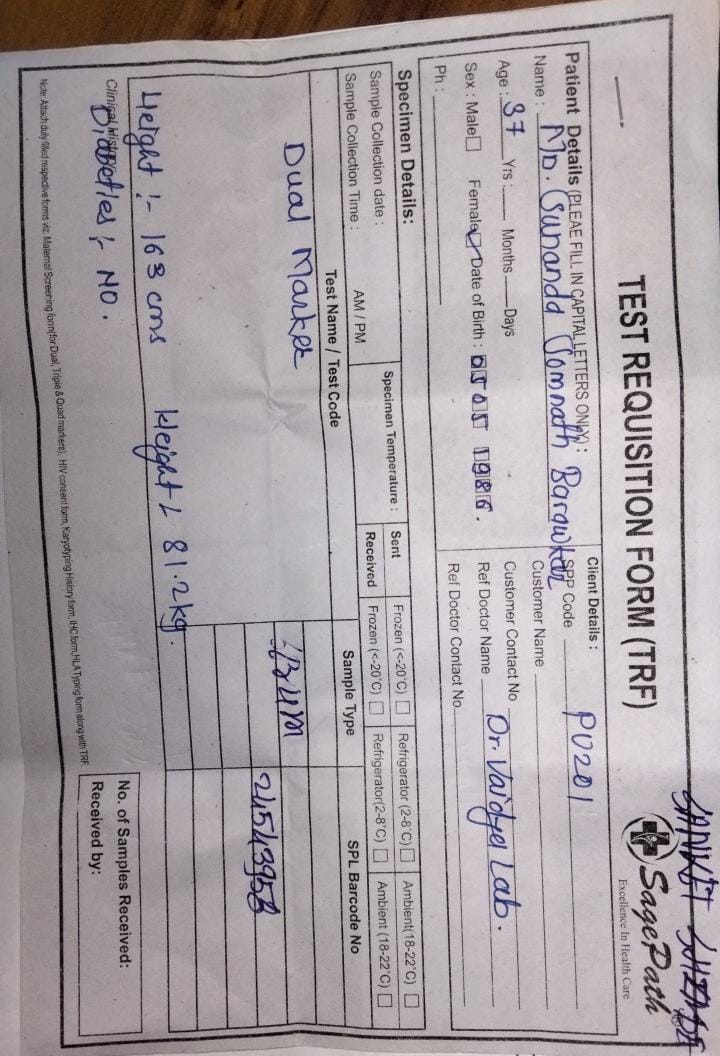 TEST REQUISITION FORM (TRF)
SagePath
Excellence In Health Care
Patient Details (PLEAE FILL IN CAPITAL LETTERS ONLY) :
Name : MD. Sunanda Somnath
Age : 37 Yrs : Months Days
Sex : Male Female Date of Birth : 0505 1986.
Ph :
Client Details :
SPP Code PU201
Customer Name
Customer Contact No
Ref Doctor Name Dr. Vaidya Lab.
Ref Doctor Contact No
Specimen Details:
Sample Collection date :
Sample Collection Time : AM / PM
Specimen Temperature :
Sent Frozen (<-20°C) Refrigerator (2-8°C) Ambient(18-22°C)
Received Frozen (<-20°C) Refrigerator(2-8°C) Ambient (18-22°C)
Test Name / Test Code Sample Type SPL Barcode No
Dual Marker
Height :- 163 cms 81.2kg.
Clinical History:
Diabetles :- NO.
No. of Samples Received:
Received by:
Note: Attach duly filled respective forms viz. Maternal Screening form(for Dual, Triple & Quad markers), HIV consent form, Karyotyping History form, IHC form, HLA Typing form along with TRF